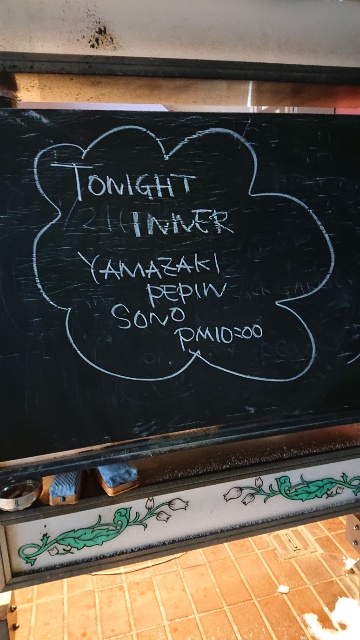 TONIGHT
INNER
YAMAZAKI
PEPIN
SONO
PM10:00